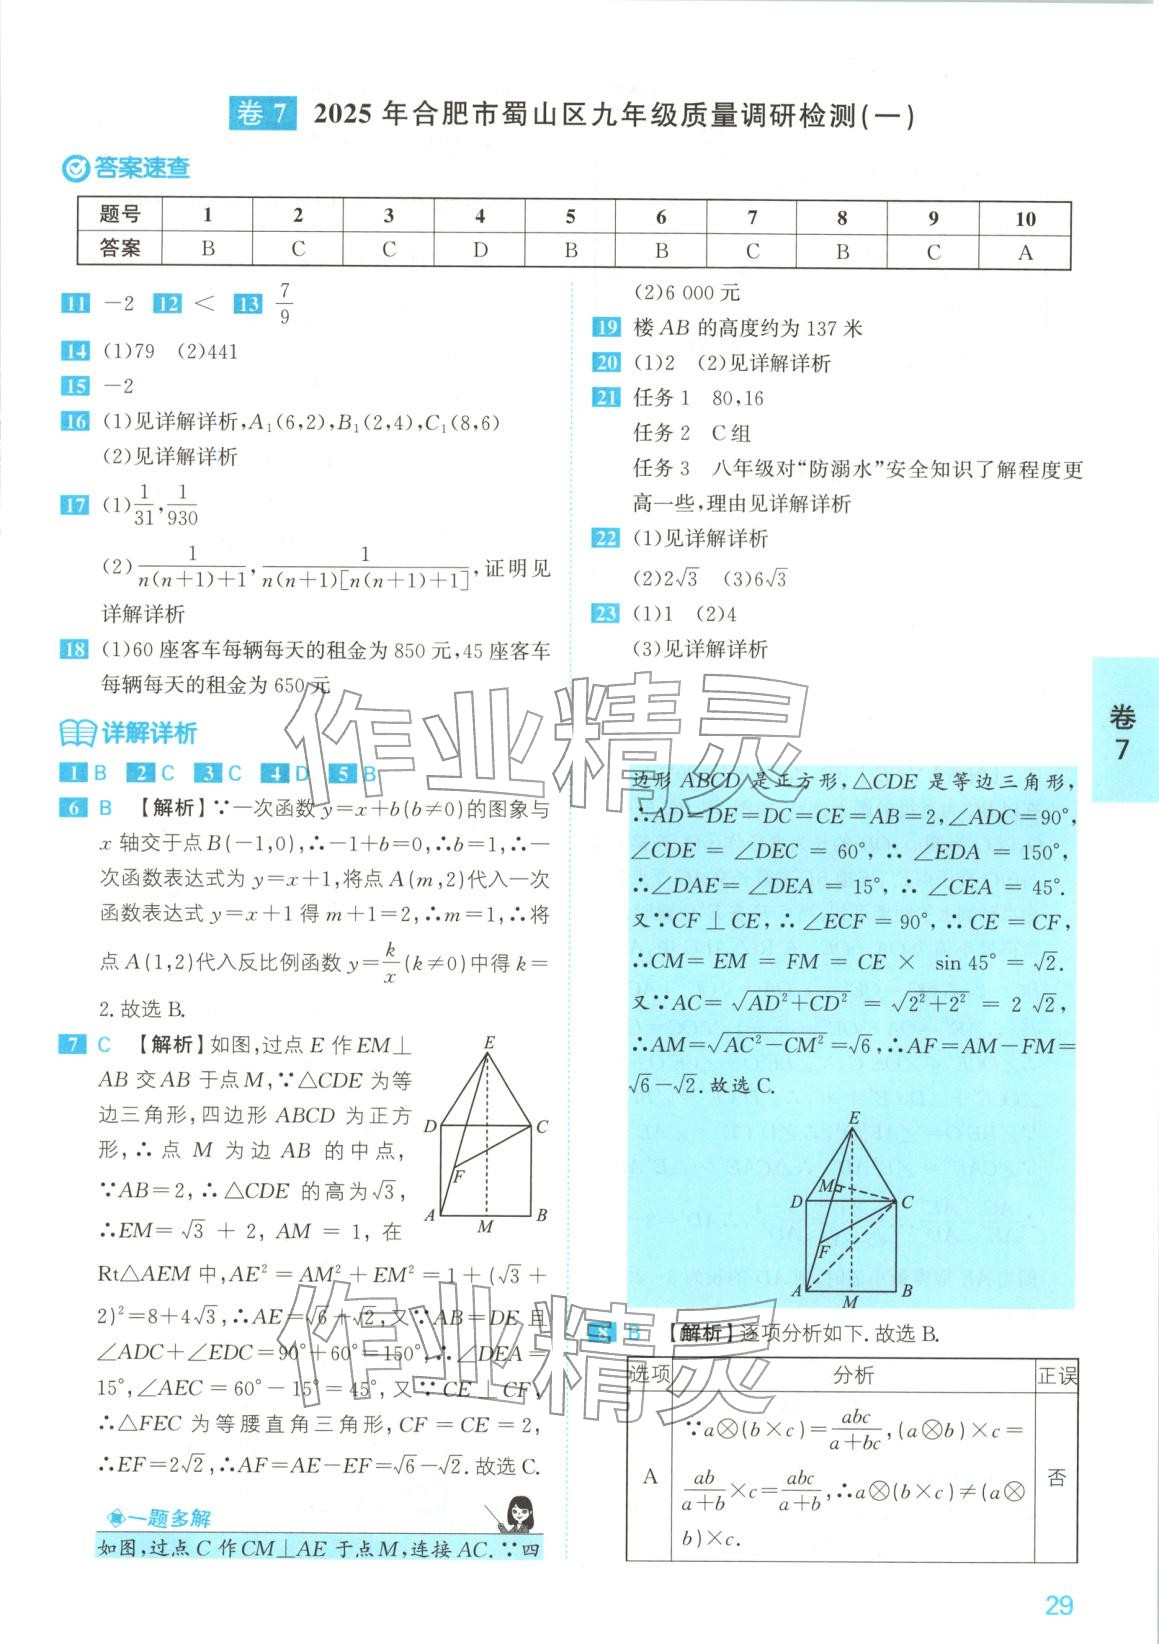 卷 7 2025 年合肥市蜀山区九年级质量调研检测(一)
答案速查
题号 1 2 3 4 5 6 7 8 9 10
答案 B C C D B B C B C A
11 -2 12 < 13 7/9
14 (1)79 (2)441
15 -2
16 (1)见详解详析,A₁(6,2),B₁(2,4),C₁(8,6)
(2)见详解详析
17 (1)1/31,1/930
(2)1/(n(n+1)+1),1/(n(n+1)[n(n+1)+1]),证明见
详解详析
18 (1)60 座客车每辆每天的租金为 850 元,45 座客车
每辆每天的租金为 650 元
(2)6 000 元
19 楼 AB 的高度约为 137 米
20 (1)2 (2)见详解详析
21 任务 1 80,16
任务 2 C 组
任务 3 八年级对“防溺水”安全知识了解程度更
高一些,理由见详解详析
22 (1)见详解详析
(2)2√3 (3)6√3
23 (1)1 (2)4
(3)见详解详析
详解详析
1 B 2 C 3 C 4 D 5 B
6 B 【解析】∵一次函数 y=x+b(b≠0)的图象与
x 轴交于点 B(-1,0),∴-1+b=0,∴b=1,∴一
次函数表达式为 y=x+1,将点 A(m,2)代入一次
函数表达式 y=x+1 得 m+1=2,∴m=1,∴将
点 A(1,2)代入反比例函数 y=k/x(k≠0)中得 k=
2.故选 B.
7 C 【解析】如图,过点 E 作 EM⊥
AB 交 AB 于点 M,∵△CDE 为等
边三角形,四边形 ABCD 为正方
形,∴点 M 为边 AB 的中点,
∵AB=2,∴△CDE 的高为√3,
∴EM=√3+2,AM=1,在
Rt△AEM 中,AE²=AM²+EM²=1+(√3+
2)²=8+4√3,∴AE=√6+√2,又∵AB=DE 且
∠ADC+∠EDC=90°+60°=150°,∴∠DEA=
15°,∠AEC=60°-15°=45°,又∵CE⊥CF,
∴△FEC 为等腰直角三角形,CF=CE=2,
∴EF=2√2,∴AF=AE-EF=√6-√2.故选 C.
E
D
C
F
A
M
B
一题多解
如图,过点 C 作 CM⊥AE 于点 M,连接 AC.∵四
边形 ABCD 是正方形,△CDE 是等边三角形,
∴AD=DE=DC=CE=AB=2,∠ADC=90°,
∠CDE=∠DEC=60°,∴∠EDA=150°,
∴∠DAE=∠DEA=15°,∴∠CEA=45°.
又∵CF⊥CE,∴∠ECF=90°,∴CE=CF,
∴CM=EM=FM=CE×sin 45°=√2.
又∵AC=√(AD²+CD²)=√(2²+2²)=2√2,
∴AM=√(AC²-CM²)=√6,∴AF=AM-FM=
√6-√2.故选 C.
E
M
D
C
F
A
M
B
8 B 【解析】逐项分析如下.故选 B.
选项 分析 正误
A
∵a⊗(b×c)=abc/(a+bc),(a⊗b)×c=
ab/(a+b)×c=abc/(a+b),∴a⊗(b×c)≠(a⊗
b)×c.
否
卷
7
29
作业精灵
作业精灵